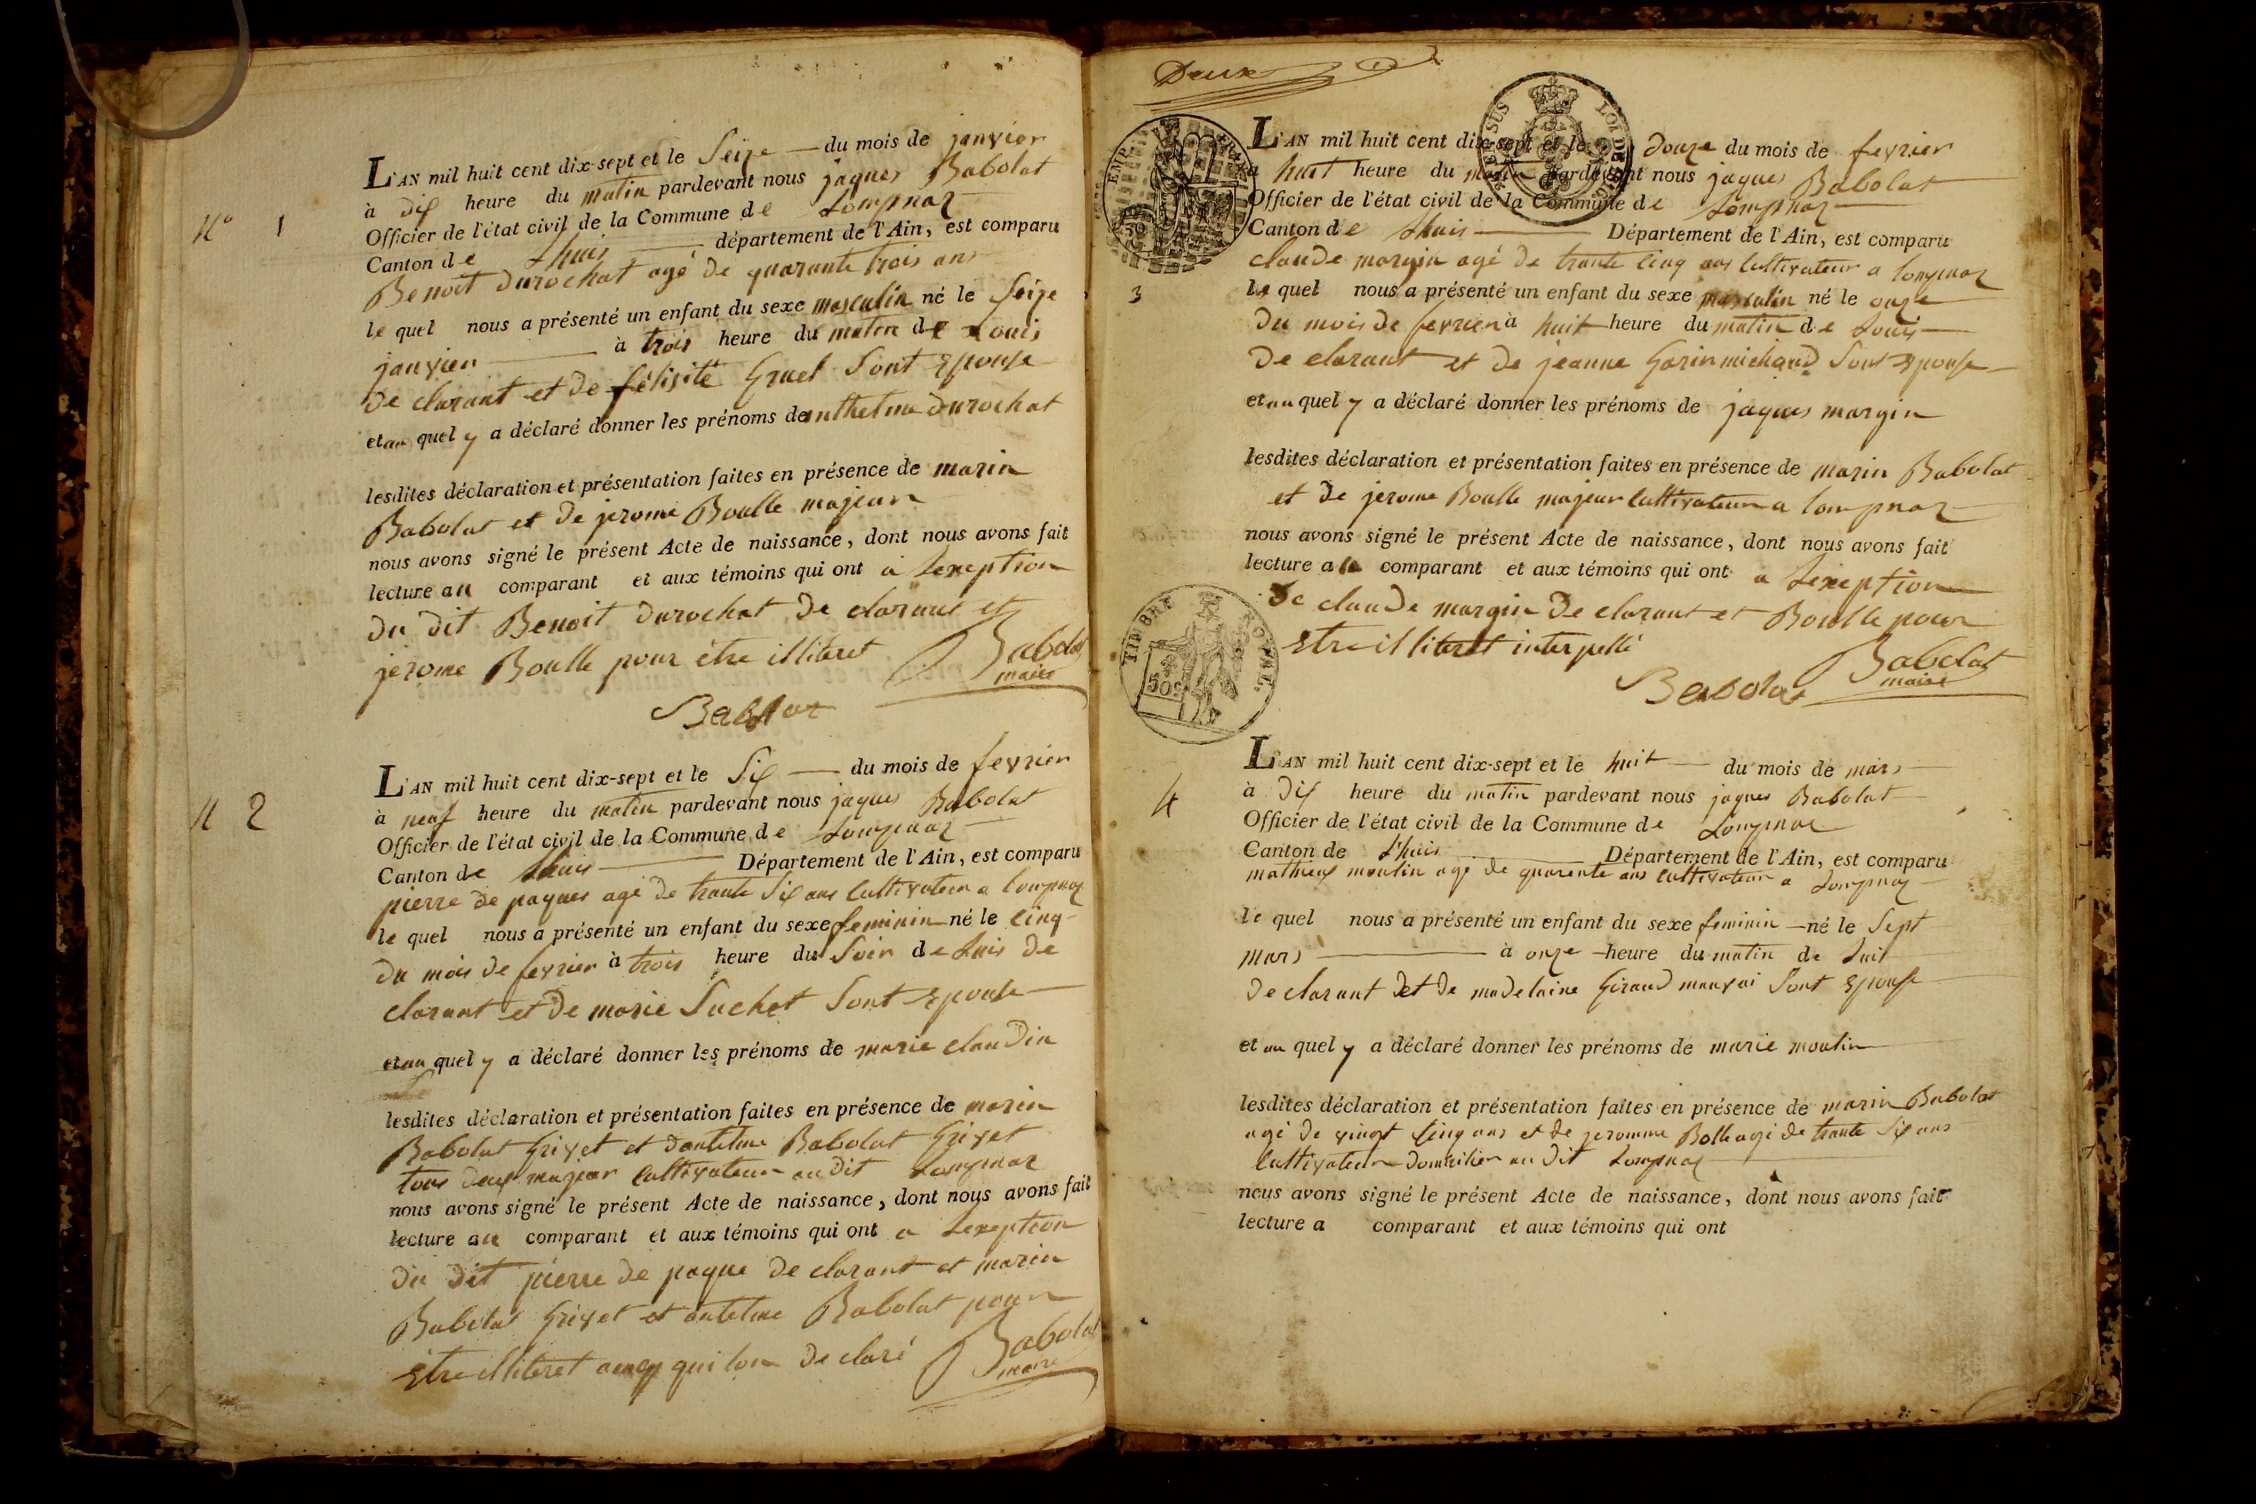 N.° 1
L'AN mil huit cent dix-sept et le Seize du mois de janvier
à dix heure du matin pardevant nous jaques Babolat
Officier de l'état civil de la Commune de Lompnaz
Canton de Lhuis département de l'Ain, est comparu
Benoit durochat agé de quarante trois ans
le quel nous a présenté un enfant du sexe masculin né le Seize
janvier à trois heure du matin de Louis
de clarant et de félisité Gruel Sont Epouse
et au quel y a déclaré donner les prénoms de anthelme durochat
lesdites déclaration et présentation faites en présence de marin
Babolat et de jerome Boulle majeur
nous avons signé le présent Acte de naissance, dont nous avons fait
lecture au comparant et aux témoins qui ont a Lexeption
du dit Benoit durochat de clarant et
jerome Boulle pour être illiteret Babolat
maire
Babolat
N 2
L'AN mil huit cent dix-sept et le Six du mois de fevrier
à neuf heure du matin pardevant nous jaques Babolat
Officier de l'état civil de la Commune de Lompnaz
Canton de Lhuis Département de l'Ain, est comparu
pierre de paques agé de trante Six ans Cultivateur a Lompnaz
le quel nous a présenté un enfant du sexe feminin né le Cinq
du mois de fevrier à trois heure du Soir de Luis de
clarant et de marie Suchet Sont Epouse
et au quel y a déclaré donner les prénoms de marie claudin
lesdites déclaration et présentation faites en présence de marin
Babolat Grivet et dantelme Babolat Grivet
tous deux majeur Cultivateur au dit Lompnaz
nous avons signé le présent Acte de naissance, dont nous avons fait
lecture au comparant et aux témoins qui ont a Lexeption
du dit pierre de paque de clarant et marin
Babolat Grivet et antelme Babolat pour
Etre illiteret qui lon declaré Babolat
maire
Deux
3
L'AN mil huit cent dix-sept et le douze du mois de fevrier
à huit heure du matin pardevant nous jaques Babolat
Officier de l'état civil de la Commune de Lompnaz
Canton de Lhuis Département de l'Ain, est comparu
claude margin agé de trante Cinq ans Cultivateur a Lompnaz
le quel nous a présenté un enfant du sexe masculin né le onze
du mois de fevrier à huit heure du matin de Louis
de clarant et de jeanne Gorin michaud Sont Epouse
et au quel y a déclaré donner les prénoms de jaques margin
lesdites déclaration et présentation faites en présence de marin Babolat
et de jerome Boulle majeur Cultivateur a Lompnaz
nous avons signé le présent Acte de naissance, dont nous avons fait
lecture a comparant et aux témoins qui ont a Lexeption
de claude margin de clarant et Boulle pour
Etre illiteret interpellé
Babolat Babolat
maire
TIMBRE ROYAL
50c
4
L'AN mil huit cent dix-sept et le huit du mois de mars
à dix heure du matin pardevant nous jaques Babolat
Officier de l'état civil de la Commune de Lompnaz
Canton de Lhuis Département de l'Ain, est comparu
mathieux moulin agé de quarente ans Cultivateur a Lompnaz
le quel nous a présenté un enfant du sexe feminin né le Sept
mars à onze heure du matin de Luit
declarant et de madelaine Giraud mauvai Sont Epouse
et au quel y a déclaré donner les prénoms de marie moulin
lesdites déclaration et présentation faites en présence de marin Babolat
agé de vingt Cinq ans et de jeromme Bolle agé de trante Six ans
Cultivateur domicilier au dit Lompnaz
nous avons signé le présent Acte de naissance, dont nous avons fait
lecture a comparant et aux témoins qui ont